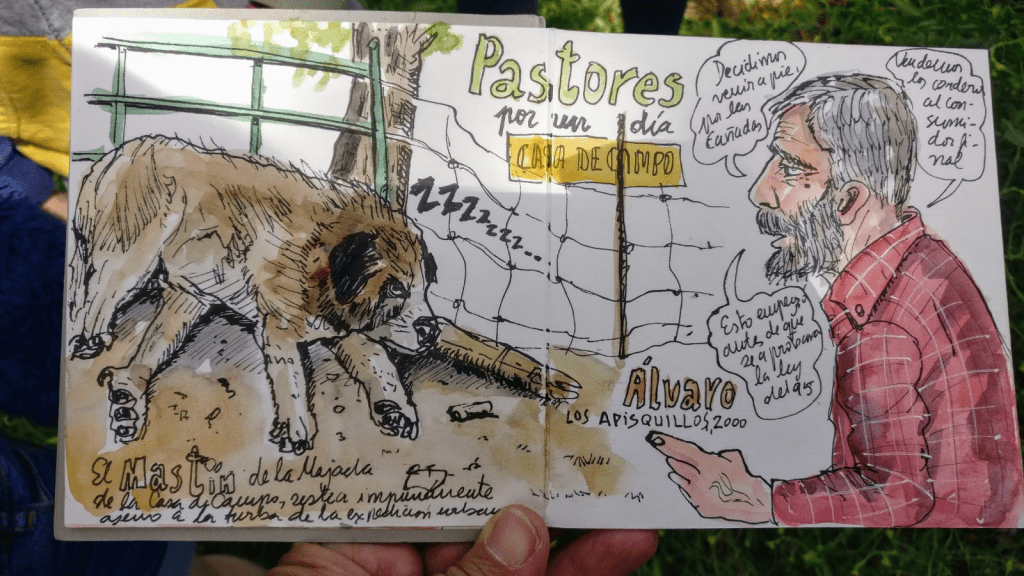 Pastores
por un día
CASA DE CAMPO
ZZZzzzz...
Decidimos
venir a pie
por las
cañadas
Vendemos
los corderos
al con-
sumi-
dor fi-
nal
Esto empezó
antes de que
se aprobara
la ley
del 95
Álvaro
LOS APISQUILLOS, 2000
El Mastín de la Majada
de la Casa de Campo, sestea impunemente
ajeno a la turba de la expedición urbana